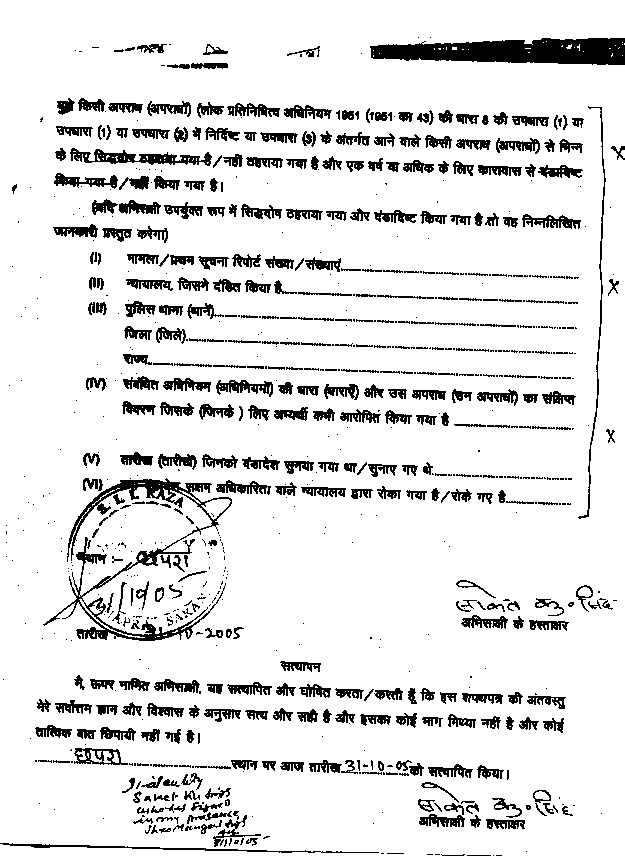 मुझे किसी अपराध (अपराधों) (लोक प्रतिनिधित्व अधिनियम 1951 (1951 का 43) की धारा 8 की उपधारा (1) या
उपधारा (1) या उपधारा (2) में निर्दिष्ट या उपधारा (3) के अंतर्गत आने वाले किसी अपराध (अपराधों) से भिन्न
के लिए सिद्धदोष ठहराया गया है/नहीं ठहराया गया है और एक वर्ष या अधिक के लिए कारावास से दंडादिष्ट
किया गया है/नहीं किया गया है।
(यदि अभिसाक्षी उपर्युक्त रूप में सिद्धदोष ठहराया गया और दंडादिष्ट किया गया है तो वह निम्नलिखित
जानकारी प्रस्तुत करेगा)
(I) मामला/प्रथम सूचना रिपोर्ट संख्या/संख्याएं
(II) न्यायालय, जिसने दंडित किया है
(III) पुलिस थाना (थानें)
जिला (जिले)
राज्य
(IV) संबंधित अधिनियम (अधिनियमों) की धारा (धाराएँ) और उस अपराध (उन अपराधों) का संक्षिप्त
विवरण जिसके (जिनके) लिए अभ्यर्थी कभी आरोपित किया गया है
(V) तारीख (तारीखें) जिनको दंडादेश सुनया गया था/सुनाए गए थे
(VI) सक्षम अधिकारिता वाले न्यायालय द्वारा रोका गया है/रोके गए है
RAZA
स्थान :- छपरा
31/10/05
SARAN
तारीख :- 31-10-2005
साकेत कु० सिंह
अभिसाक्षी के हस्ताक्षर
सत्यापन
मै, ऊपर नामित अभिसाक्षी, यह सत्यापित और घोषित करता/करती हूँ कि इस शपथपत्र की अंतवस्तु
मेरे सर्वोत्तम ज्ञान और विश्वास के अनुसार सत्य और सही है और इसका कोई भाग मिथ्या नहीं है और कोई
तात्विक बात छिपायी नहीं गई है।
छपरा स्थान पर आज तारीख 31-10-05 को सत्यापित किया।
I identify
Saket Kr Singh
who has signed
in my presence
31/10/05
साकेत कु० सिंह
अभिसाक्षी के हस्ताक्षर